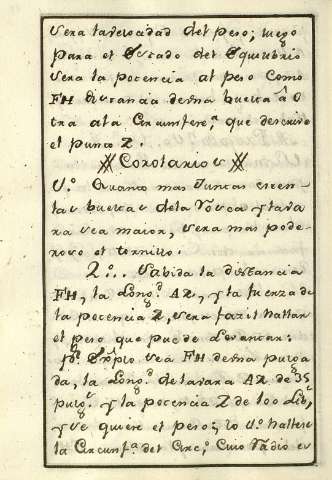 sera la velocidad del peso; luego
para el Estado del Equilibrio
sera la potencia al peso como
FH distancia de una buelta â O
tra ala Circunfere.ª que descrive
el punto Z.
Corolarios
1.º Quanto mas Juntas esten
las bueltas dela Rosca y la va
ra sea maior, sera mas pode-
roso el tornillo.
2.º Sabida la distancia
FH, la Long.d AZ, y la fuerza de
la potencia Z, sera facil hallar
el peso que puede Levantar:
p.r Explo sea FH de una pulga
da, la Long.d de la vara AZ de 35
pulg.s y la potencia Z de 100 Lib.s
y se quiere el peso; lo 1.º hallese
la Circunf.ª del Circ.º Cuio Radio es